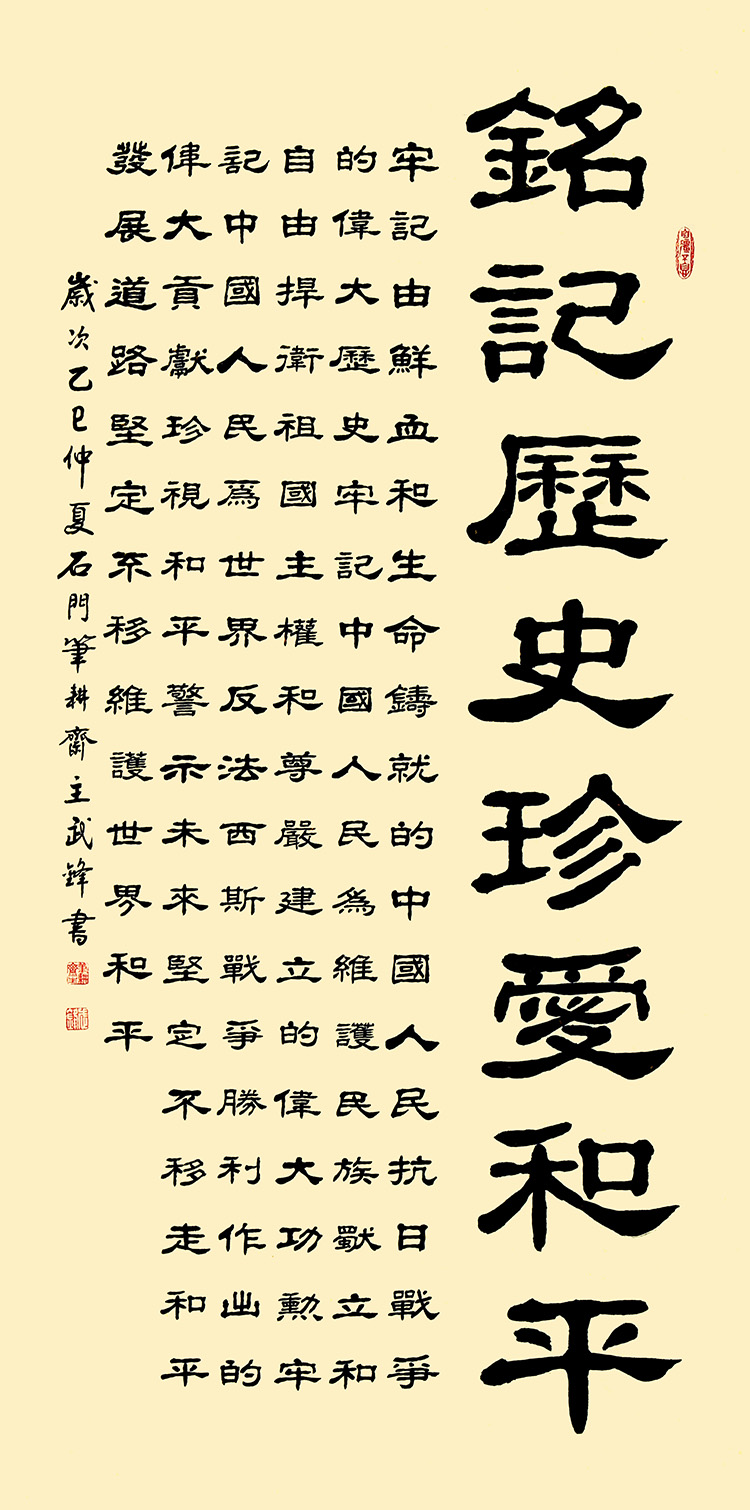 銘記歷史珍愛和平
牢記由鮮血和生命鑄就的中國人民抗日戰爭
的偉大歷史牢記中國人民為維護民族獨立和
自由捍衛祖國主權和尊嚴建立的偉大功勳牢
記中國人民爲世界反法西斯戰爭勝利作出的
偉大貢獻珍視和平警示未來堅定不移走和平
發展道路堅定不移維護世界和平
歲次乙巳仲夏石門筆耕齋主武鋒書